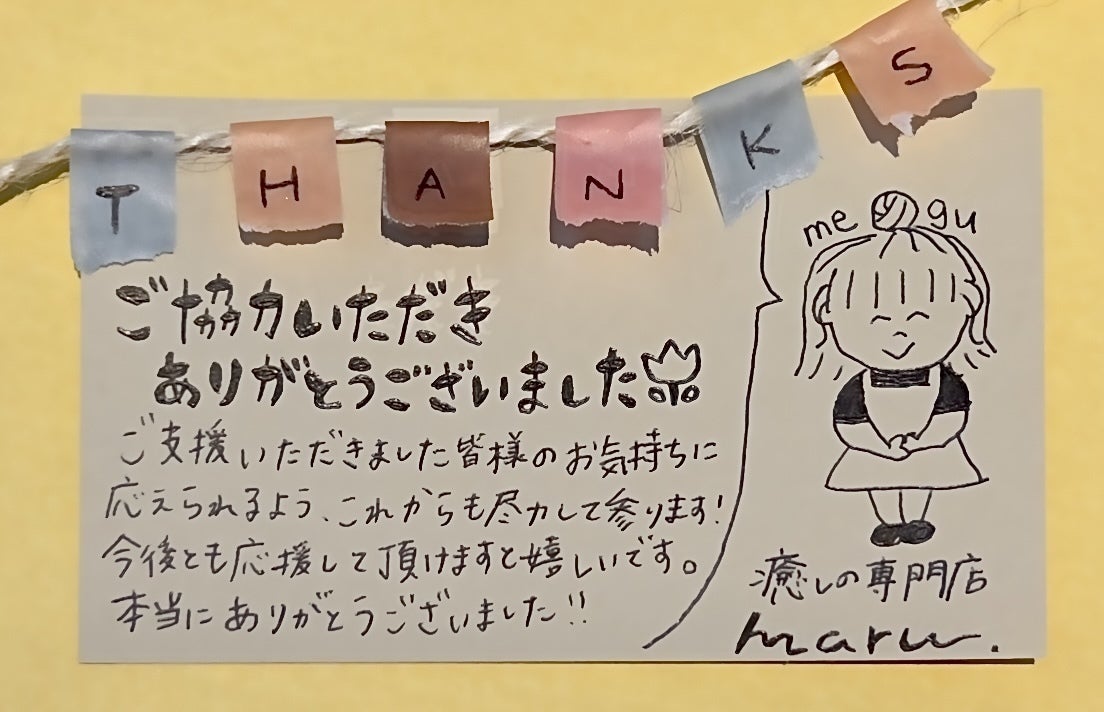 THANKS
ご協力いただき
ありがとうございました
ご支援いただきました皆様のお気持ちに
応えられるよう、これからも尽力して参ります!
今後とも応援して頂けますと嬉しいです。
本当にありがとうございました!!
me gu
癒しの専門店
maru.